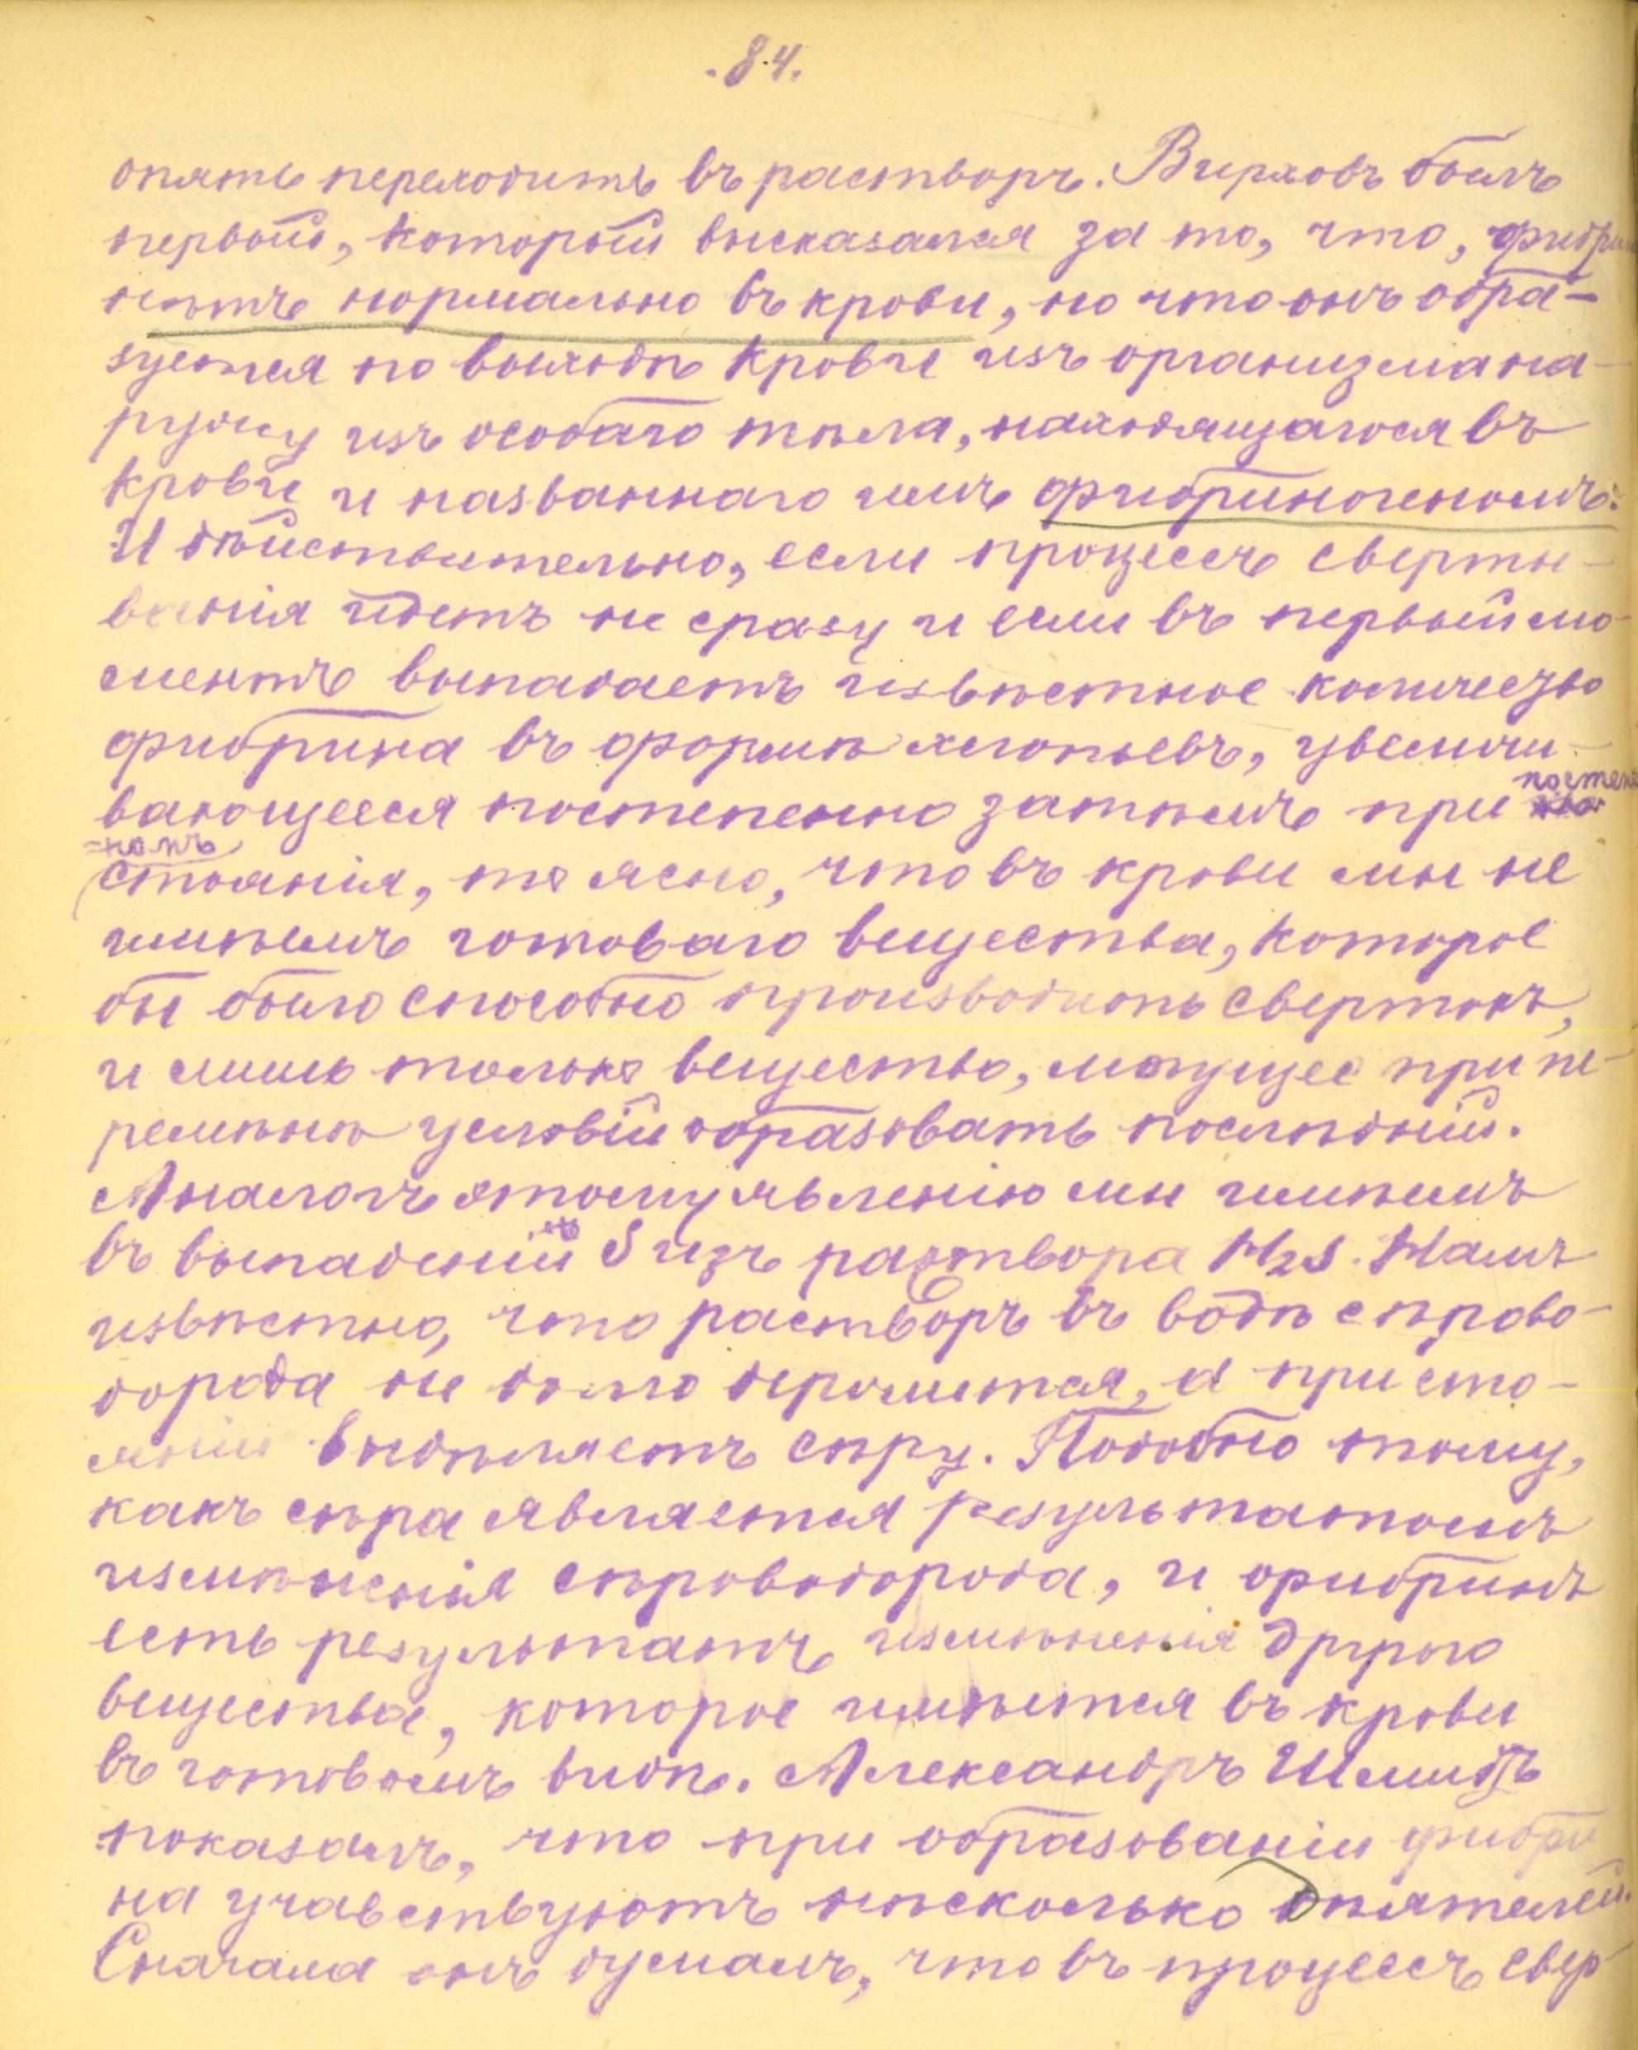 .84.
опять переходитъ въ растворъ. Вирховъ былъ
первый, который высказался за то, что, фибри
нътъ нормально въ крови, но что онъ обра-
зуется по выходѣ крови изъ организма на-
ружу изъ особаго тѣла, находящагося въ
крови и названнаго имъ фибриногеномъ.
И дѣйствительно, если процессъ сверты-
ванія идетъ не сразу и если въ первый мо-
ментъ выпадаетъ извѣстное количество
фибрина въ формѣ хлопьевъ, увеличи-
вающееся постепенно затѣмъ при постепен
=номъ
стоянія, то ясно, что въ крови мы не
имѣемъ готоваго вещества, которое
бы было способно производить свертокъ,
и лишь только вещество, могущее при пе-
ремѣнѣ условій образовать послѣдній.
Аналогъ этому явленію мы имѣемъ
въ выпаденіи S изъ раствора H₂S. Намъ
извѣстно, что растворъ въ водѣ сѣрово-
дорода не долго держится, а при сто-
яніи выдѣляетъ сѣру. Подобно тому,
какъ сѣра является результатомъ
измѣненія сѣроводорода, и фибринъ
есть результатъ измѣненія другого
вещества, которое имѣется въ крови
въ готовомъ видѣ. Александръ Шмидтъ
показалъ, что при образованіи фибри
на учавствуютъ нѣсколько дѣятелей.
Сначала онъ думалъ, что въ процессъ свер-